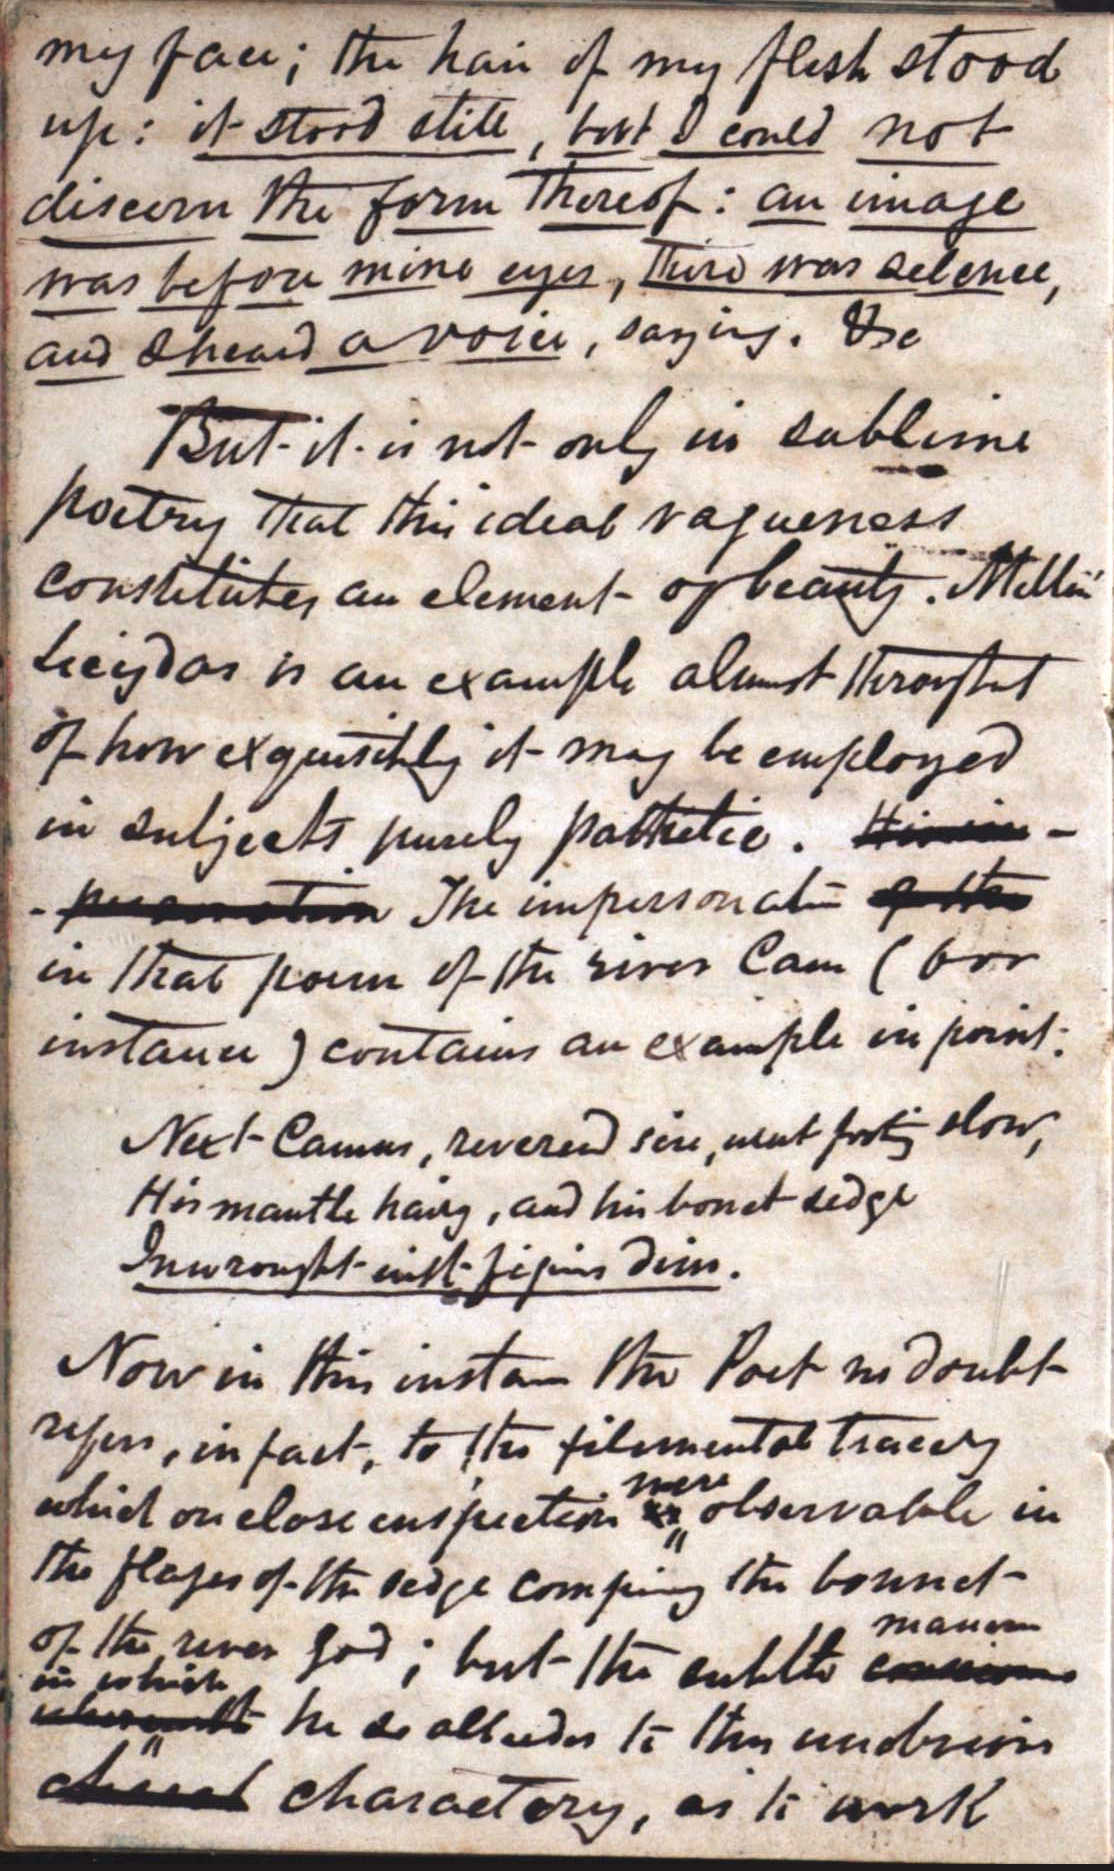 my face; the hair of my flesh stood
up: it stood still, but I could not
discern the form thereof: an image
was before mine eyes, there was silence,
and I heard a voice, saying. &c
But it is not only in sublime
poetry that this ideal vagueness
constitutes an element of beauty. Milton's
Lycidas is an example almost throught
of how exquisitely it may be employed
in subjects purely pathetic. His im-
-personation The impersonation of the
in that poem of the river Cam (for
instance) contains an example in point:
Next Camus, reverend sire, went footing slow,
His mantle hairy, and his bonnet sedge
Inwrought with figures dim.
Now in this instance the Poet no doubt
refers, in fact, to the filimental tracery
which on close inspection were observable in
the flages of the sedge comprising the bonnet
of the river god; but the subtle manner
in which he so alludes to this undrawn
charactory, as to work